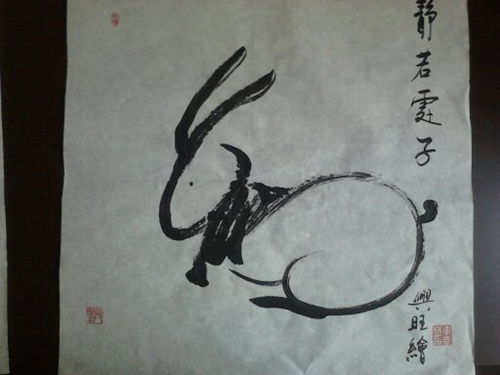 静若處子
興旺繪